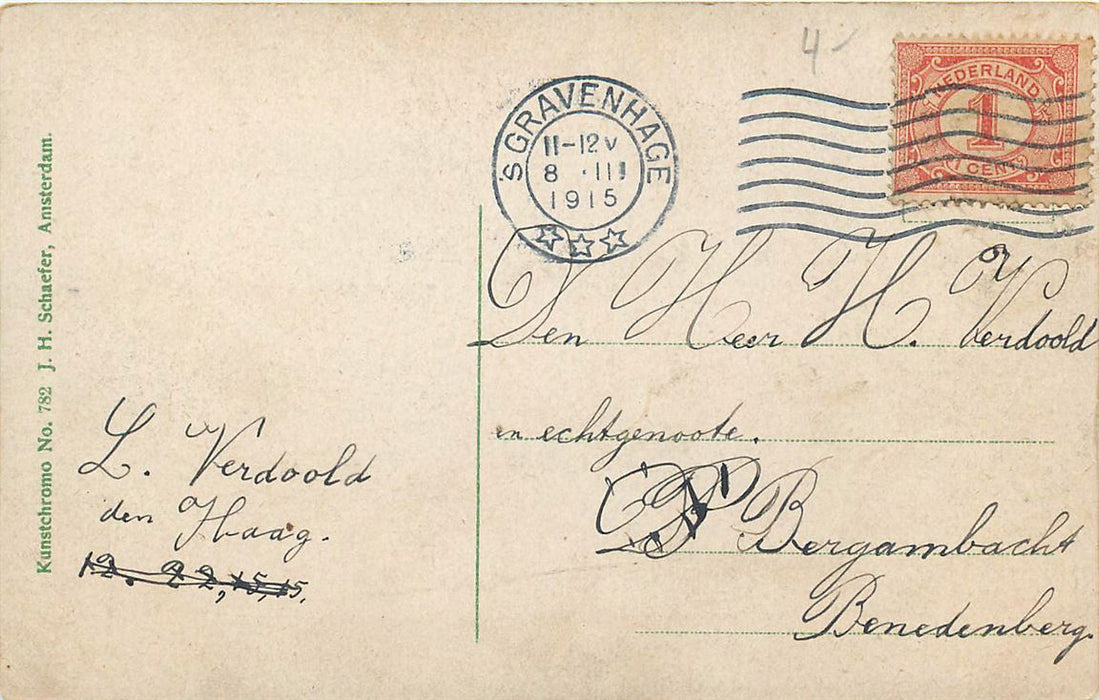 Kunstchromo No. 782 J. H. Schaefer, Amsterdam.
4
'S GRAVENHAGE
11-12 V
8 · III
1915
NEDERLAND
1
1 CENT
Den Heer H. Verdoold
en echtgenoote.
Bergambacht
Benedenberg.
L. Verdoold
den Haag.